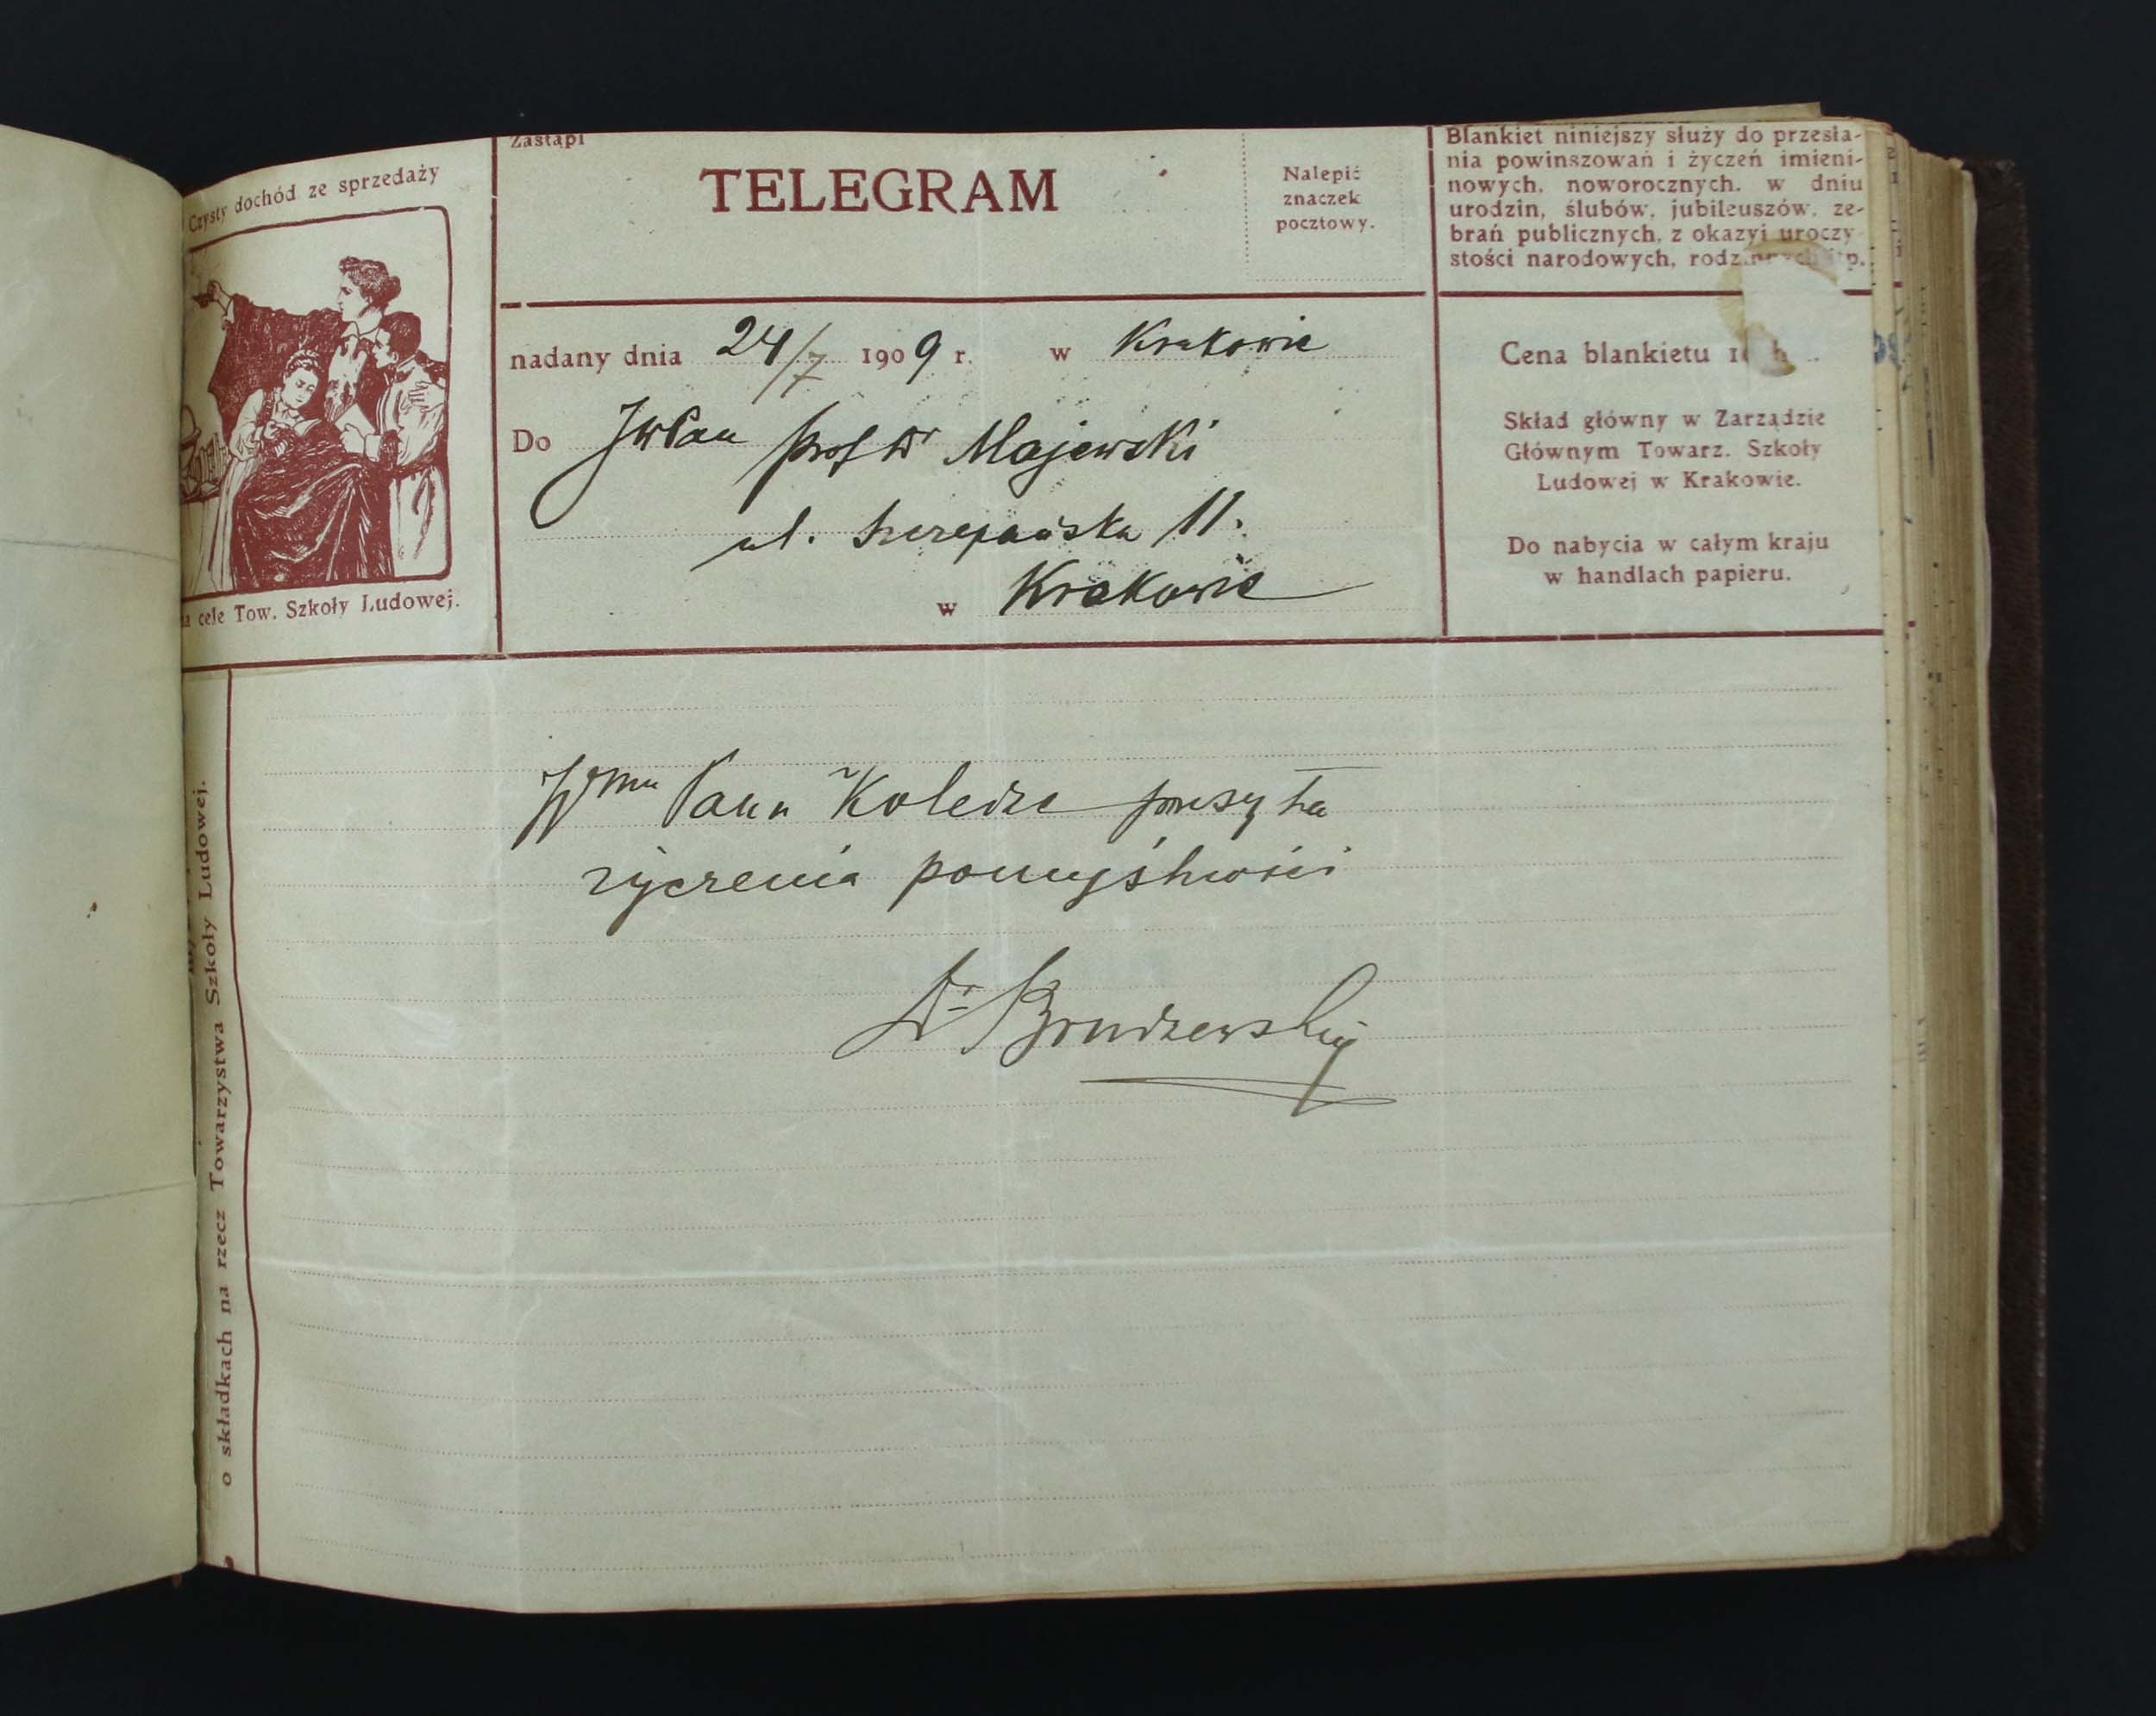 Czysty dochód ze sprzedaży
na cele Tow. Szkoły Ludowej.
Zastąpi
TELEGRAM
Nalepić
znaczek
pocztowy.
nadany dnia 24/7 1909 r. w Krakowie
Do JWPan Prof Dr Majewski
ul. Szczepańska 11.
w Krakowie
Blankiet niniejszy służy do przesła-
nia powinszowań i życzeń imieni-
nowych, noworocznych, w dniu
urodzin, ślubów, jubileuszów, ze-
brań publicznych, z okazyi uroczy-
stości narodowych, rodzinnych itp.
Cena blankietu
Skład główny w Zarządzie
Głównym Towarz. Szkoły
Ludowej w Krakowie.
Do nabycia w całym kraju
w handlach papieru.
o składkach na rzecz Towarzystwa Szkoły Ludowej.
Wmu Panu Koledze przesyła
życzenia pomyślności
Dr Brudzewski